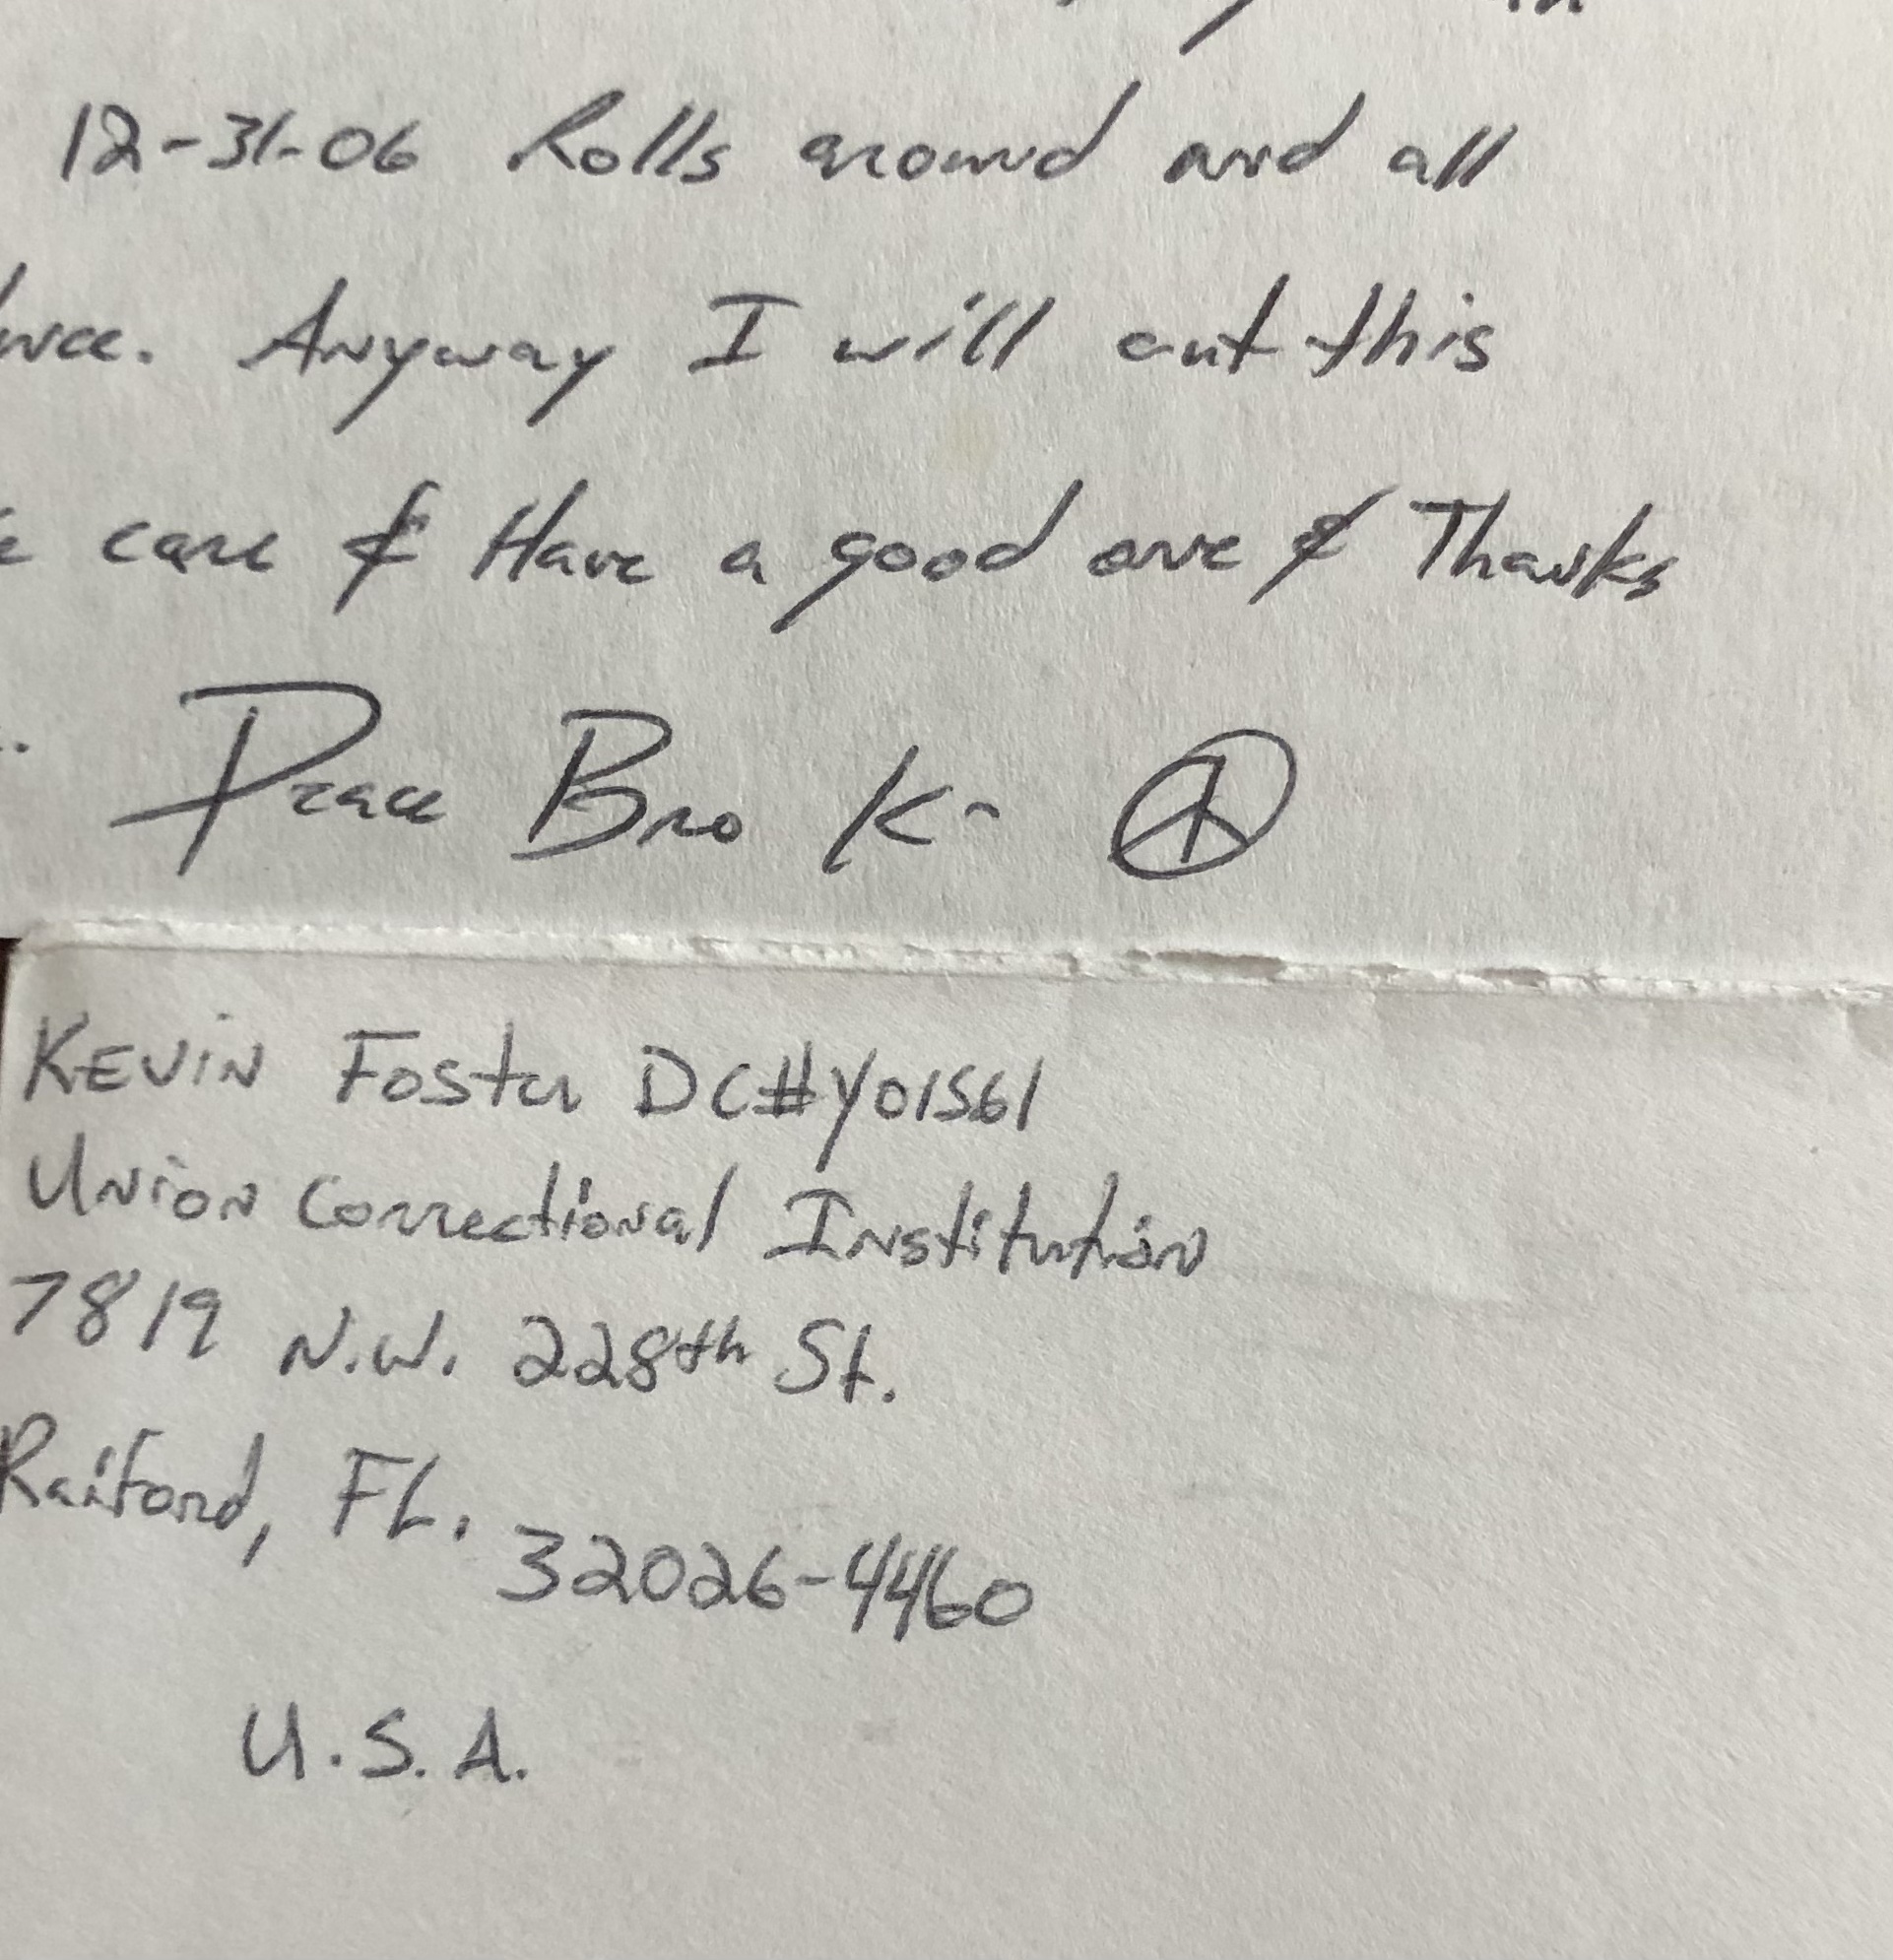 12-31-06 Rolls around and all
Anyway I will cut this
care & Have a good one & Thanks
Peace Bro K-
KEVIN Foster DC#Y01561
UNiON Correctional Institution
7819 N.W. 228th St.
Raiford, FL. 32026-4460
U.S.A.